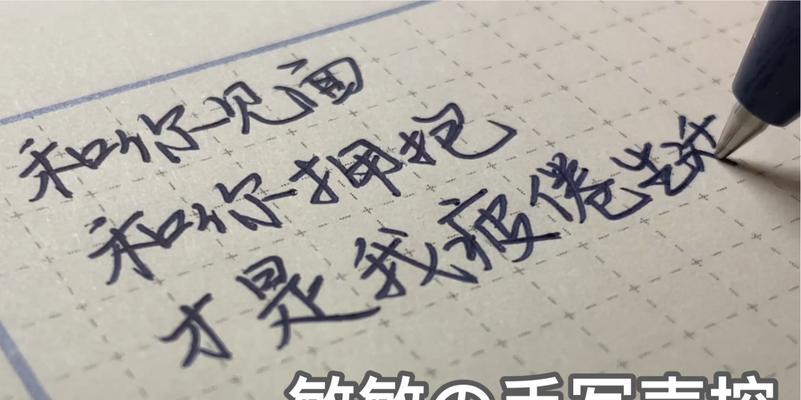 和你见面
和你拥抱
才是我疲倦生活
敏敏の手写声控